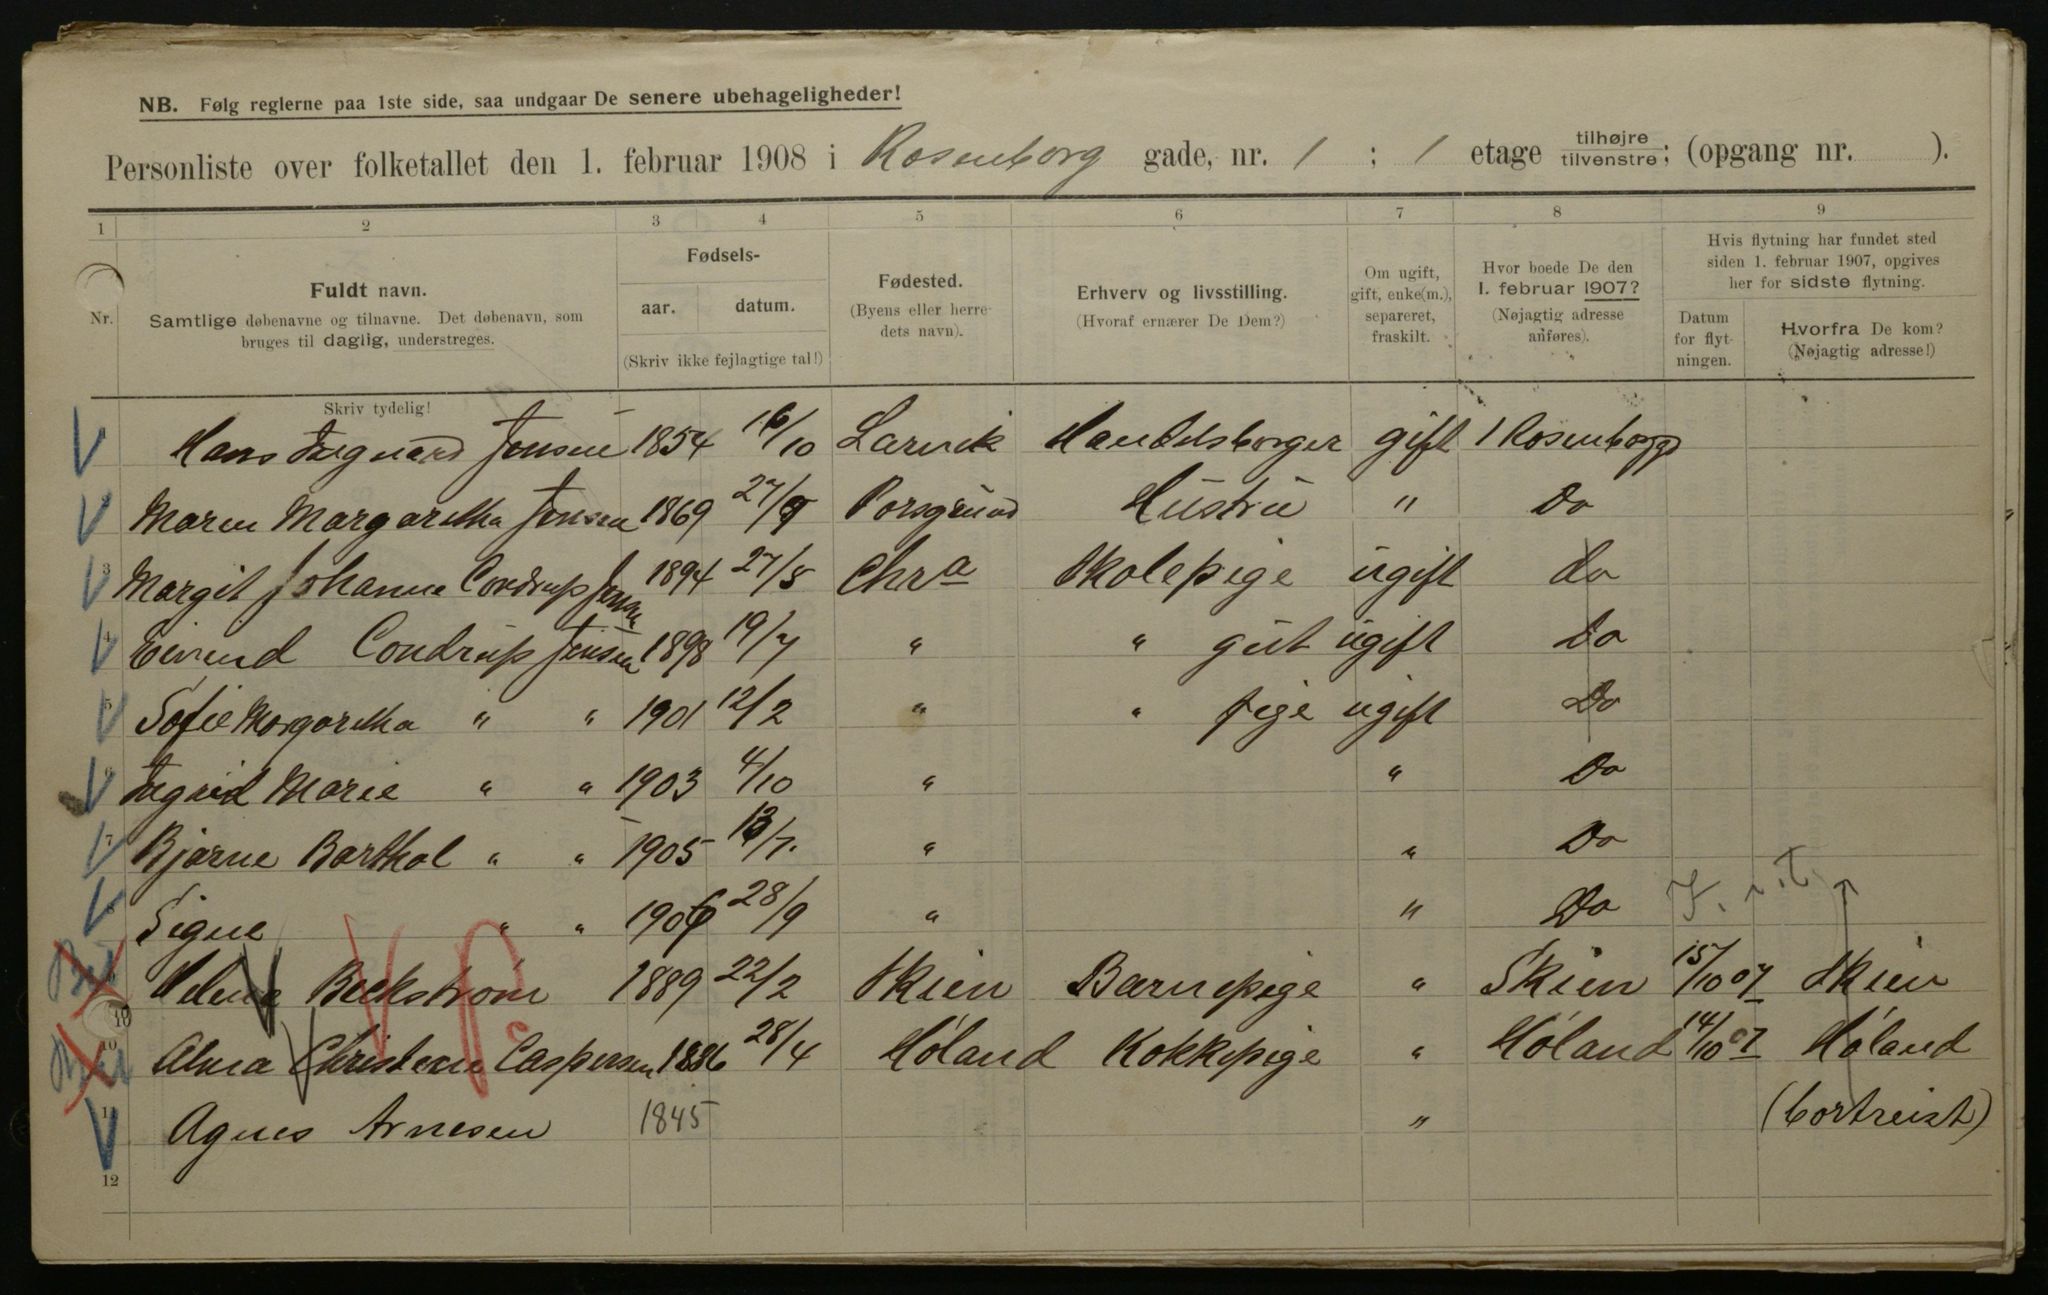 NB. Følg reglerne paa 1ste side, saa undgaar De senere ubehageligheder!
Personliste over folketallet den 1. februar 1908 i Rosenborg gade, nr. 1 ; 1 etage tilhøjre tilvenstre; (opgang nr. ).
1 2 3 4 5 6 7 8 9
Nr.
Fuldt navn.
Samtlige døbenavne og tilnavne. Det døbenavn, som
bruges til daglig, understreges.
Skriv tydelig!
Fødsels-
aar. datum.
(Skriv ikke fejlagtige tal!)
Fødested.
(Byens eller herre-
dets navn).
Erhverv og livsstilling.
(Hvoraf ernærer De Dem?)
Om ugift,
gift, enke(m.),
separeret,
fraskilt.
Hvor boede De den
1. februar 1907?
(Nøjagtig adresse
anføres).
Hvis flytning har fundet sted
siden 1. februar 1907, opgives
her for sidste flytning.
Datum
for flyt-
ningen.
Hvorfra De kom?
(Nøjagtig adresse!)
1 Hans Ingvard Jensen 1854 16/10 Larvik Handelsborger gift 1 Rosenborgg
2 Maren Margaretha Jensen 1869 27/9 Porsgrund Hustru " Do
3 Margit Johanne Condrup Jensen 1894 27/8 Chra Skolepige ugift do
4 Eivind Condrup Jensen 1898 19/7 " " gut ugift Do
5 Sofie Margaretha " " 1901 12/2 " " pige ugift Do
6 Ingrid Marie " " 1903 4/10 " " Do
7 Bjarne Barthol " " 1905 13/7. " " Do
8 Signe " " 1906 28/9 " " Do
9 Beckstrøm 1889 22/2 Skien Barnepige " Skien 15/10 07 Skien
10 Alma Christine Caspersen 1886 28/4 Høland Kokkepige " Høland 14/10 07 Høland
11 Agnes Arnesen 1845 " (bortreist)
12